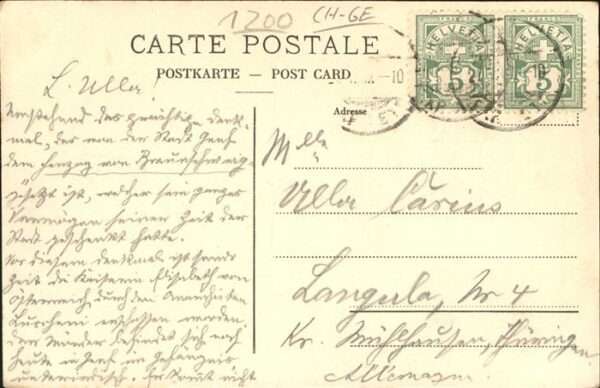 1200 CH-GE
CARTE POSTALE
POSTKARTE — POST CARD
HELVETIA HELVETIA
5 5
Adresse
L. Ulla!
Umstehend das prächtige Denk-
mal, das von der Stadt Genf
dem Herzog von Braunschweig
gesetzt ist, welcher sein ganzes
Vermögen seiner Zeit der
Stadt geschenkt hatte.
Vor diesem Denkmale ist seiner
Zeit die Kaiserin Elisabeth von
Österreich durch den Anarchisten
Luccheni erschossen worden
der Mörder befindet sich noch
heute in Genf im Gefängnis
unterirdisch. Er kommt nicht
Mlle
Ulla Carius
Langula, Nr 4
Kr. Mühlhausen, Thüringen
Allemagne